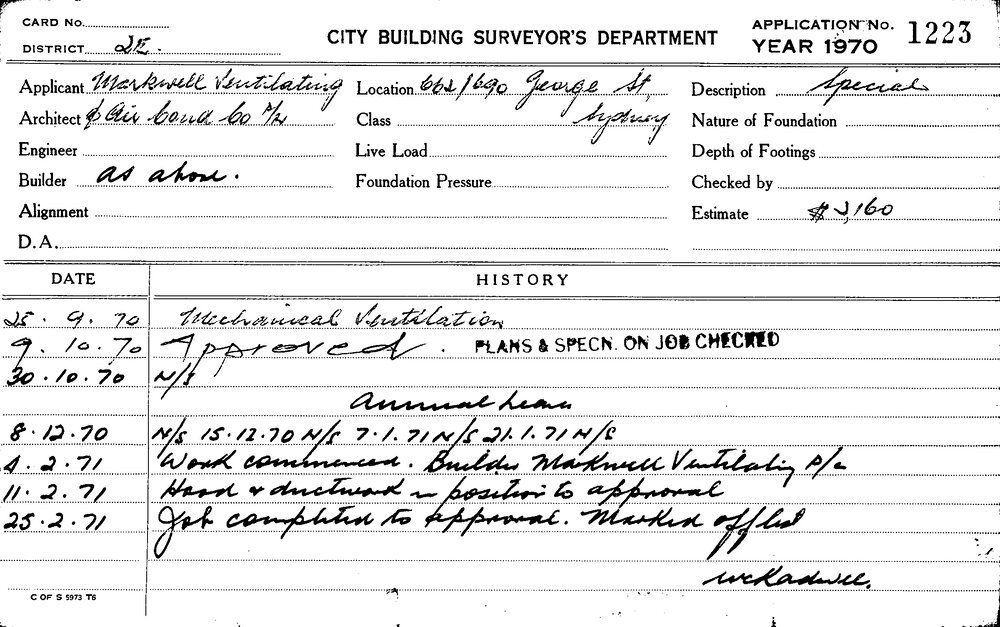 CARD No.
DISTRICT 2E.
CITY BUILDING SURVEYOR'S DEPARTMENT
APPLICATION No. 1223
YEAR 1970
Applicant Markwell Ventilating
Location 662/690 George St,
Description Special
Architect & Air Cond Co P/L
Class Sydney
Nature of Foundation
Engineer
Live Load
Depth of Footings
Builder as above.
Foundation Pressure
Checked by
Alignment
Estimate $2,160
D.A.
DATE HISTORY
25. 9. 70 Mechanical Ventilation
9. 10. 70 Approved. PLANS & SPECN. ON JOB CHECKED
30.10.70 N/S
Annual Leave
8.12.70 N/S 15.12.70 N/S 7.1.71 N/S 21.1.71 N/S
4.2.71 Work commenced. Builder Markwell Ventilating P/L
11.2.71 Hood & ductwork in position to approval
25.2.71 Job completed to approval. Marked off list
C OF S 5973 T6